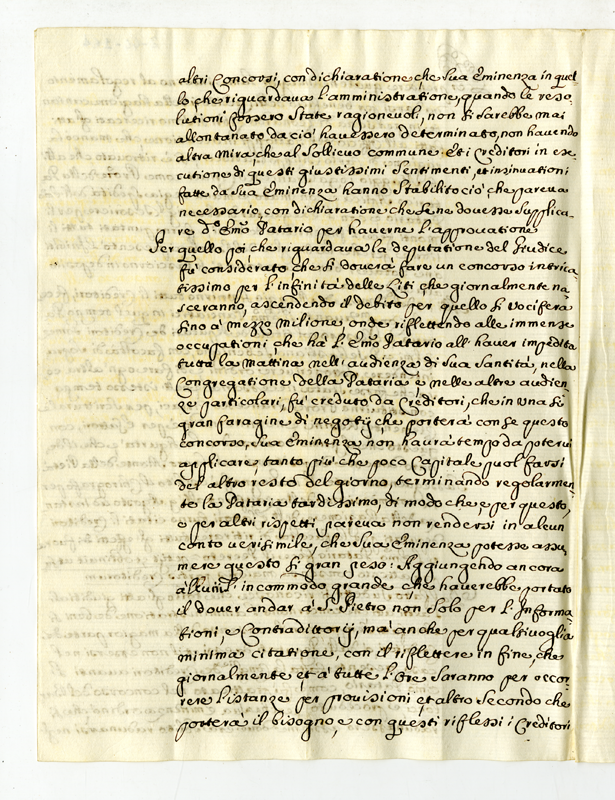 altri Concorsi, con dichiaratione che Sua Eminenza in quel
lo che riguardaua l'amministratione, quando le reso
lutioni fossero State ragioneuoli, non si sarebbe mai
allontanato da ciò hauessero determinato, non hauendo
altra mira che al Sollieuo commune. Et i Creditori in ese
cutione di questi giustissimi Sentimenti, et insinuationi
fatte da Sua Eminenza hanno Stabilito ciò che pareua
necessario, con dichiaratione che se ne douesse supplica
re d.º Emo Datario per hauerne l'approuatione
Per quello poi che riguardaua la deputatione del Giudice
fù considerato che si douerà fare un concorso intrica
tissimo per l'infinità delle Liti che giornalmente na
sceranno, ascendendo il debito per quello si uocifera
sino a mezzo milione, onde riflettendo alle immense
occupationi che hà l'Emo Datario all'hauer impedita
tutta la mattina nell'audienza di Sua Santità, nella
Congregatione della Dataria e nelle altre audien
ze particolari, fù creduto da Creditori, che in una sì
gran faragine di negotij che porterà con se questo
concorso, Sua Eminenza non haurà tempo da poterui
applicare, tanto più che poco Capitale puol farsi
del altro resto del giorno, terminando regolarmen
te la Dataria tardissimo, di modo che e per questo,
e per altri rispetti pareua non rendersi in alcun
conto uerisimile, che Sua Eminenza potesse assu
mere questo sì gran peso: Aggiungendo ancora
incommodo grande che hauerebbe portato
il douer andar à S. Pietro non Solo per l'Informa
tioni, e Contradittorij, mà anche per qualsiuoglia
minima citatione, con il riflettere in fine, che
giornalmente et à tutte l'Ore saranno per occor
rere l'istanze per prouisioni et altro Secondo che
porterà il bisogno e con questi riflessi i Creditori